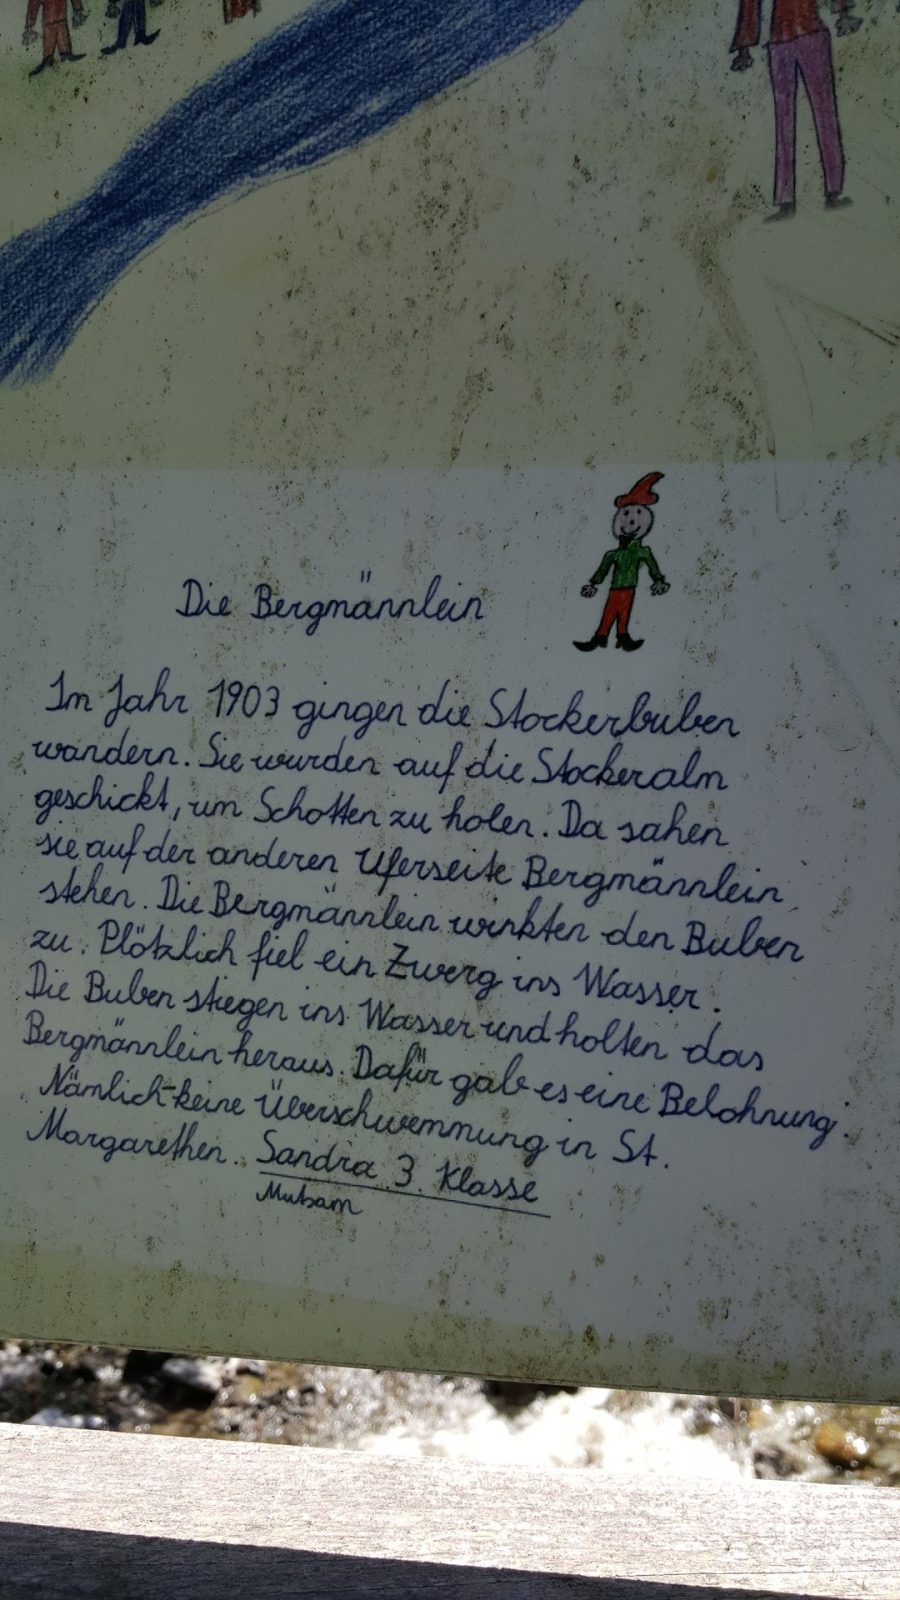 Die Bergmännlein
Im Jahr 1903 gingen die Stockerbuben
wandern. Sie wurden auf die Stockeralm
geschickt, um Schotten zu holen. Da sahen
sie auf der anderen Uferseite Bergmännlein
stehen. Die Bergmännlein winkten den Buben
zu. Plötzlich fiel ein Zwerg ins Wasser.
Die Buben stiegen ins Wasser und holten das
Bergmännlein heraus. Dafür gab es eine Belohnung.
Nämlich keine Überschwemmung in St.
Margarethen. Sandra 3. Klasse